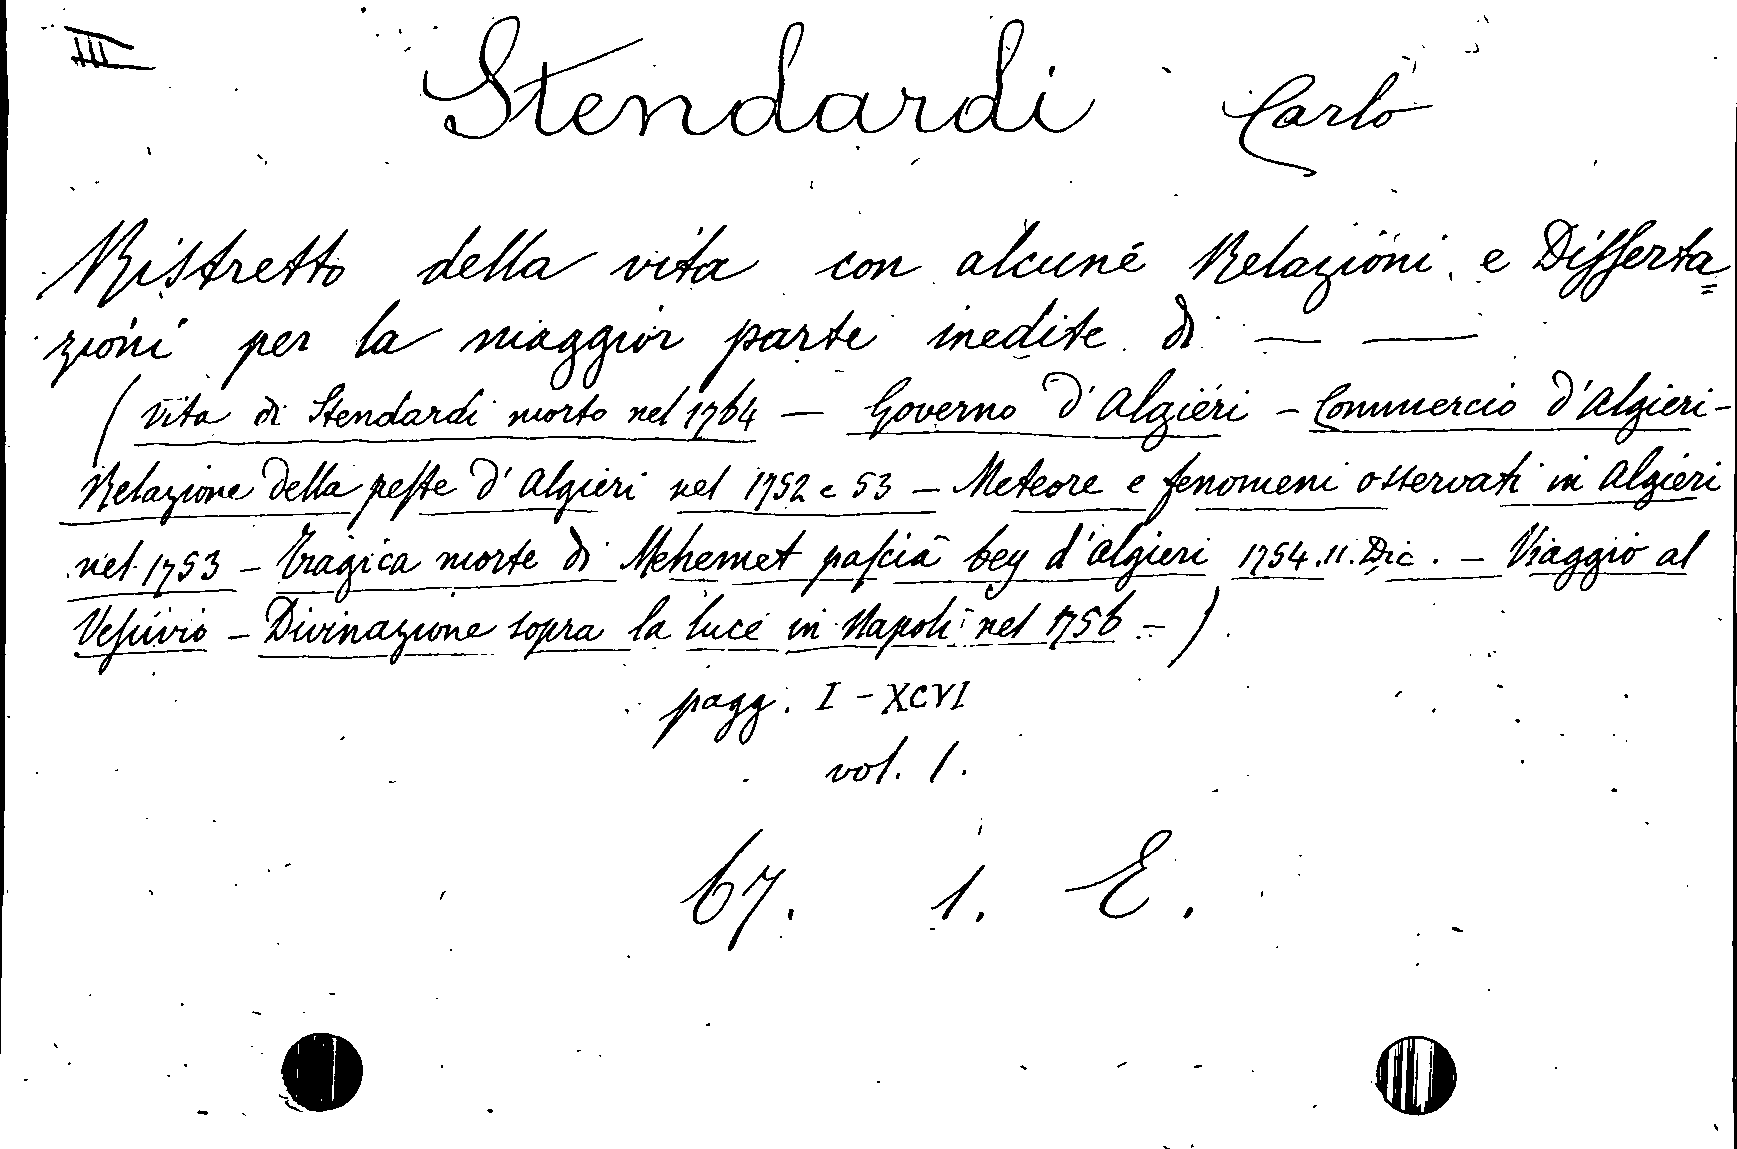 III
Stendardi Carlo
Ristretto della vita con alcune Relazioni e Disserta=
zioni per la maggior parte inedite di — —
(Vita di Stendardi morto nel 1764 — Governo d'Algieri - Commercio d'Algieri -
Relazione della peste d'Algieri nel 1752 e 53 — Meteore e fenomeni osservati in Algieri
nel 1753 - Tragica morte di Mehemet pascià bey d'Algieri 1754.11. Dic. — Viaggio al
Vesuvio - Divinazione sopra la luce in Napoli nel 1756 - )
pagg. I - XCVI
vol. 1.
67. 1. E.